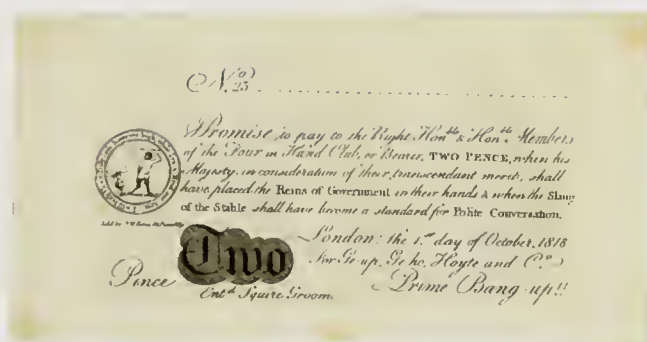 No. 25
I Promise to pay to the Right Honble & Honble Members
of the Four in Hand Club, or Bearer, TWO PENCE, when his
Majesty, in consideration of their transcendant merit, shall
have placed the Reins of Government in their hands & when the Slang
of the Stable shall have become a standard for Polite Conversation.
London: the 1st day of October, 1818
Two
For Ge-up, Ge ho, Hoyte and Co.
Pence
Entd Squire Groom.
Prime Bang-up!!